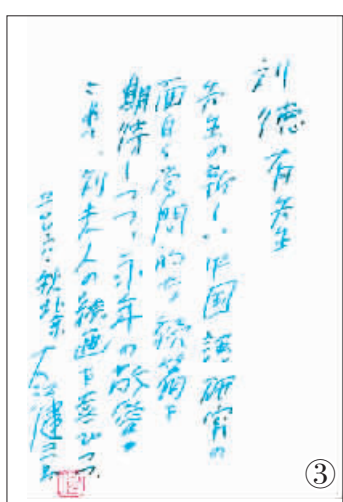 刘徳有先生
先生の新しい中国語研究の
面白く学問的な続篇を
期待しつつ、永年の敬愛を
こめ、刘夫人の絵画を喜びつつ
秋北京 大江健三郎
③